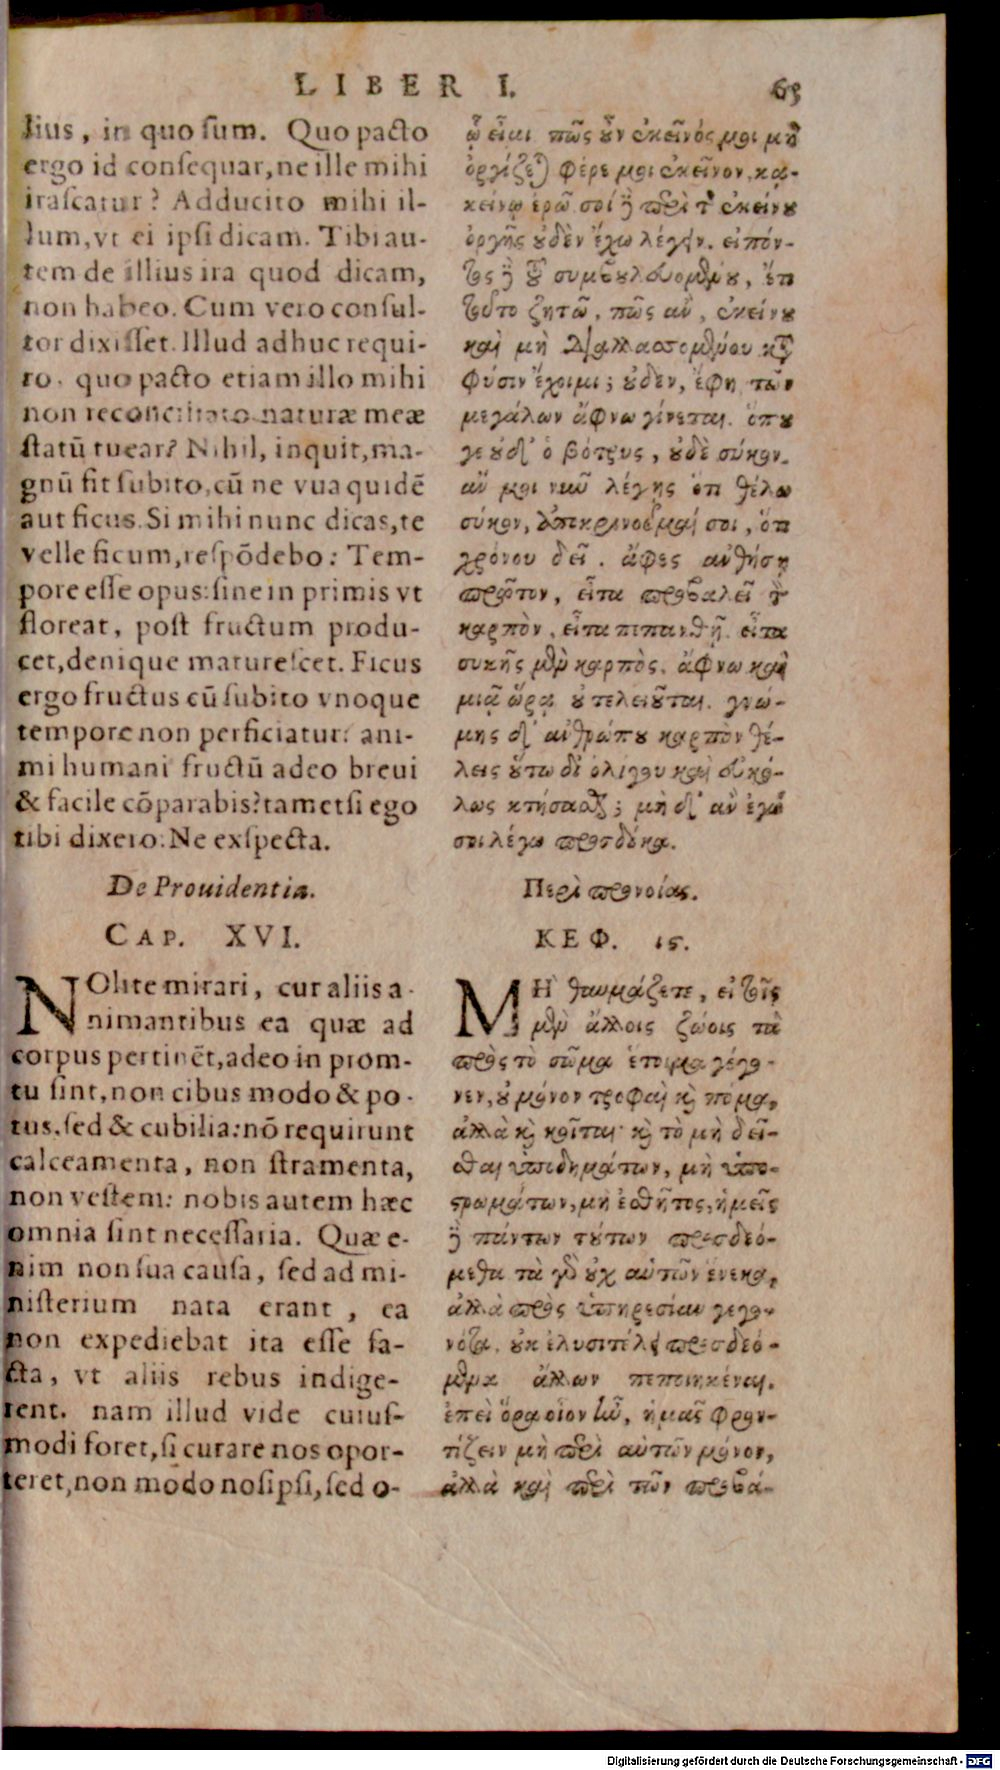 LIBER I. 65
lius, in quo sum. Quo pacto
ergo id consequar, ne ille mihi
irascatur? Adducito mihi il-
lum, vt ei ipsi dicam. Tibi au-
tem de illius ira quod dicam,
non habeo. Cum vero consul-
tor dixisset. Illud adhuc requi-
ro. quo pacto etiam illo mihi
non reconciliato naturæ meæ
statũ tuear? Nihil, inquit, ma-
gnũ fit subito, cũ ne vua quidẽ
aut ficus. Si mihi nunc dicas, te
velle ficum, respõdebo: Tem-
pore esse opus: sine in primis vt
floreat, post fructum produ-
cet, denique maturescet. Ficus
ergo fructus cũ subito vnoque
tempore non perficiatur: ani-
mi humani fructũ adeo breui
& facile cõparabis? tametsi ego
tibi dixero: Ne exspecta.
De Prouidentia.
CAP. XVI.
NOlite mirari, cur aliis a-
nimantibus ea quæ ad
corpus pertinẽt, adeo in prom-
tu sint, non cibus modo & po-
tus. sed & cubilia: nõ requirunt
calceamenta, non stramenta,
non vestem: nobis autem hæc
omnia sint necessaria. Quæ e-
nim non sua causa, sed ad mi-
nisterium nata erant, ea
non expediebat ita esse fa-
cta, vt aliis rebus indige-
rent. nam illud vide cuius-
modi foret, si curare nos opor-
teret, non modo nosipsi, sed o-
ᾧ εἰμι πῶς οὖν ἐκεῖνός μοι μὴ
ὀργίζεται φέρε μοι ἐκεῖνον, κα-
κείνῳ ἐρῶ. σοί δὲ περὶ τῆς ἐκείνου
ὀργῆς οὐδὲν ἔχω λέγειν. εἰπόν-
τος δὲ τοῦ συμβουλευομένου, ἔτι
τοῦτο ζητῶ, πῶς ἂν, ἐκείνου
καὶ μὴ διαλλασσομένου κατὰ
φύσιν ἔχοιμι; οὐδὲν, ἔφη, τῶν
μεγάλων ἄφνω γίνεται. ὅπου
γε οὐδ' ὁ βότρυς, οὐδὲ σύκον.
ἄν μοι νῦν λέγῃς ὅτι θέλω
σύκον, ἀποκρινοῦμαί σοι, ὅτι
χρόνου δεῖ. ἄφες ἀνθήσῃ
πρῶτον, εἶτα προβαλεῖ τὸν
καρπὸν, εἶτα πεπανθῇ. εἶτα
συκῆς μὲν καρπὸς, ἄφνω καὶ
μιᾷ ὥρᾳ οὐ τελειοῦται. γνώ-
μης δ' ἀνθρώπου καρπὸν θέ-
λεις οὕτω δι' ὀλίγου καὶ εὐκό-
λως κτήσασθαι; μὴ δ' ἂν ἐγώ
σοι λέγω προσδόκα.
Περὶ προνοίας.
ΚΕΦ. ις.
ΜΗ θαυμάζετε, εἰ τοῖς
μὲν ἄλλοις ζώοις τὰ
πρὸς τὸ σῶμα ἕτοιμα γέγο-
νεν, οὐ μόνον τροφαὶ καὶ πόμα,
ἀλλὰ καὶ κοῖται· καὶ τὸ μὴ δεῖ-
σθαι ὑποδημάτων, μὴ ὑπο-
στρωμάτων, μὴ ἐσθῆτος, ἡμεῖς
δὲ πάντων τούτων προσδεό-
μεθα τὰ γὰρ οὐχ αὑτῶν ἕνεκα,
ἀλλὰ πρὸς ὑπηρεσίαν γεγο-
νότα. οὐκ ἐλυσιτέλει προσδεό-
μενα ἄλλων πεποιηκέναι.
ἐπεὶ ὅρα οἷον ἦν, ἡμᾶς φρον-
τίζειν μὴ περὶ αὑτῶν μόνον,
ἀλλὰ καὶ περὶ τῶν προβά-
Digitalisierung gefördert durch die Deutsche Forschungsgemeinschaft - DFG